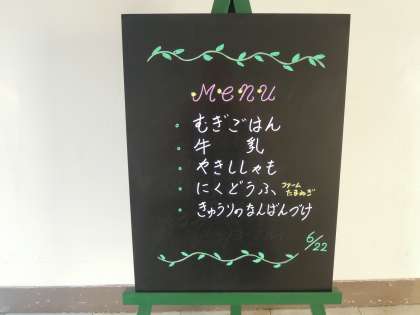 MENU
むぎごはん
牛 乳
やきししゃも
にくどうふ、ファームたまねぎ
きゅうりのなんばんづけ
6/22